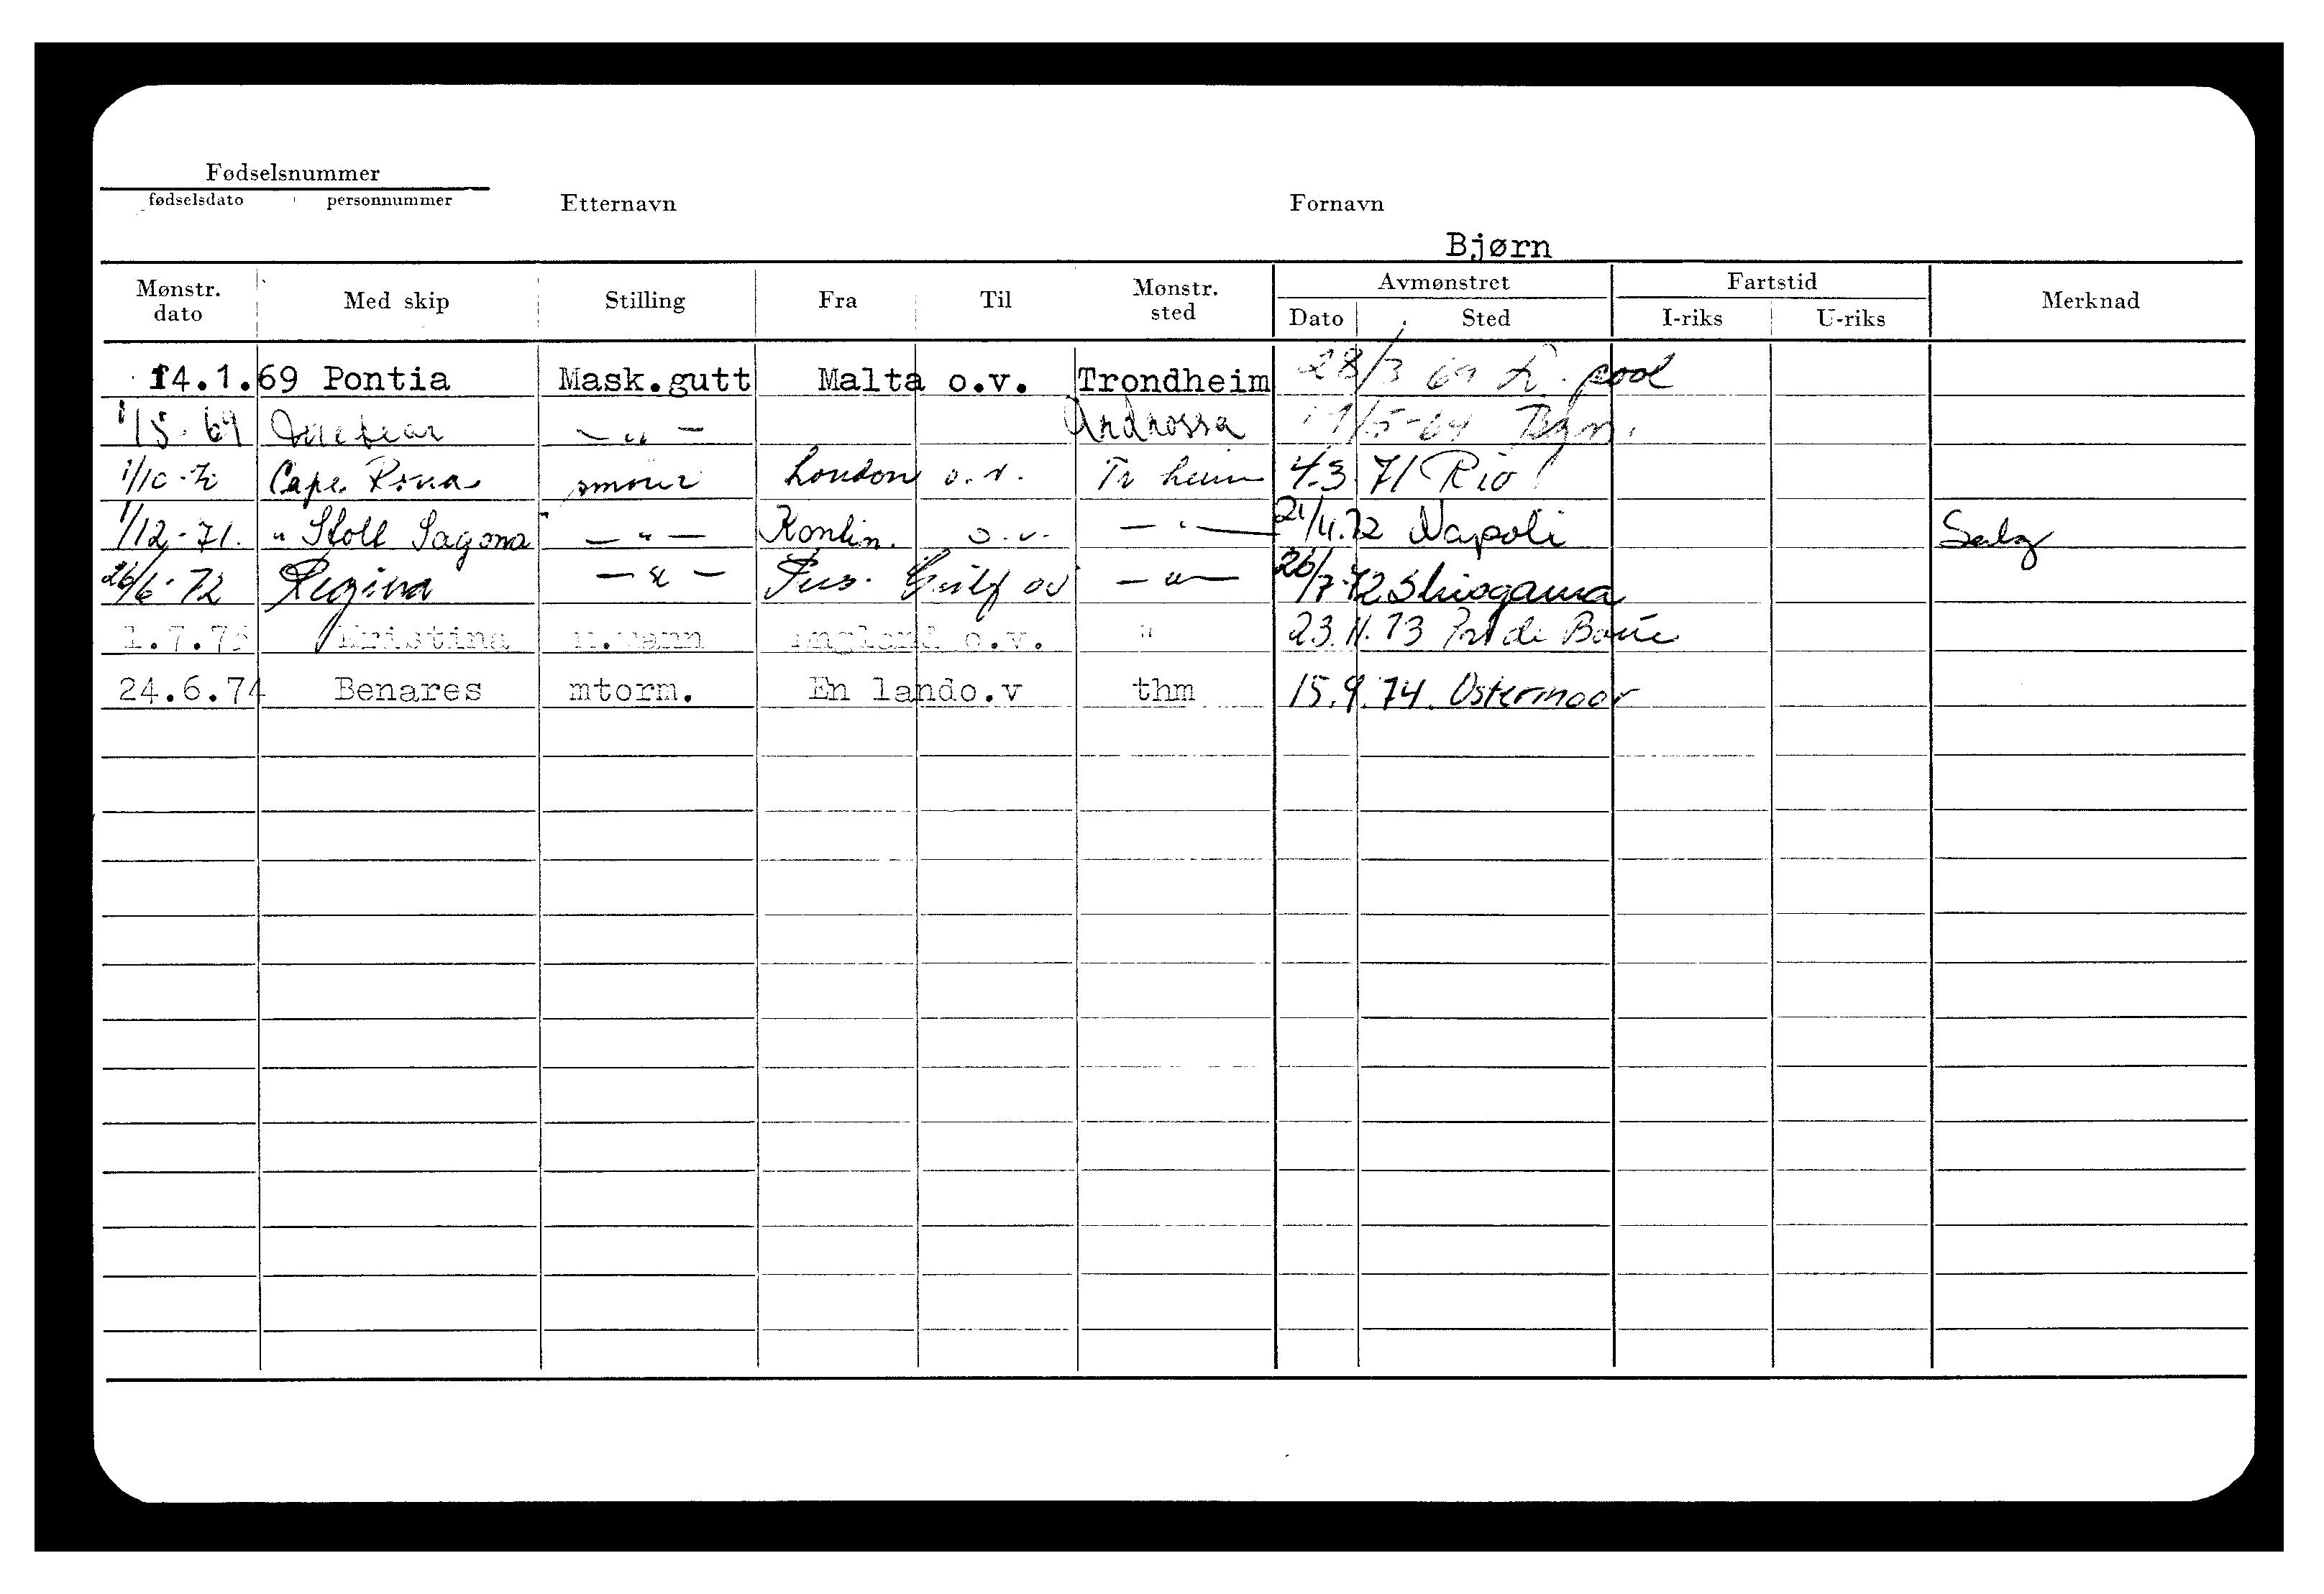 Fødselsnummer
fødselsdato personnummer Etternavn Fornavn
Bjørn
Mønstr. dato Med skip Stilling Fra Til Mønstr. sted Avmønstret Dato Sted Fartstid I-riks U-riks Merknad
14.1.69 Pontia Mask.gutt Malta o.v. Trondheim 28/3 69 L.pool
1/5-69 - " -
Cape Rona smører London o.v. Tr heim 4.3.71 Rio
1/12-71. " Stolt Sagona - " - Kontin. o.v. - " - Napoli Salg
26/6-72 Regina - " - Pers. Gulf ov - " - 26/7-72 Shiogama
Kristina England o.v. " 23.11.73 Port de Bouc
24.6.74 Benares mtorm. En lando.v thm 15.9.74. Ostermoor